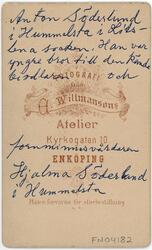 Anton Söderlund
i Hummelsta i Lits-
lena socken. Han var
yngre bror till den kände
biodlaren och
FOTOGRAFI
från
A. Willmansons
Atelier
Kyrkogatan 10
fornminnesvårdaren
ENKÖPING
Hjalma Söderlund
i Hummelsta
Plåten förvaras för efterbeställning
FN04182